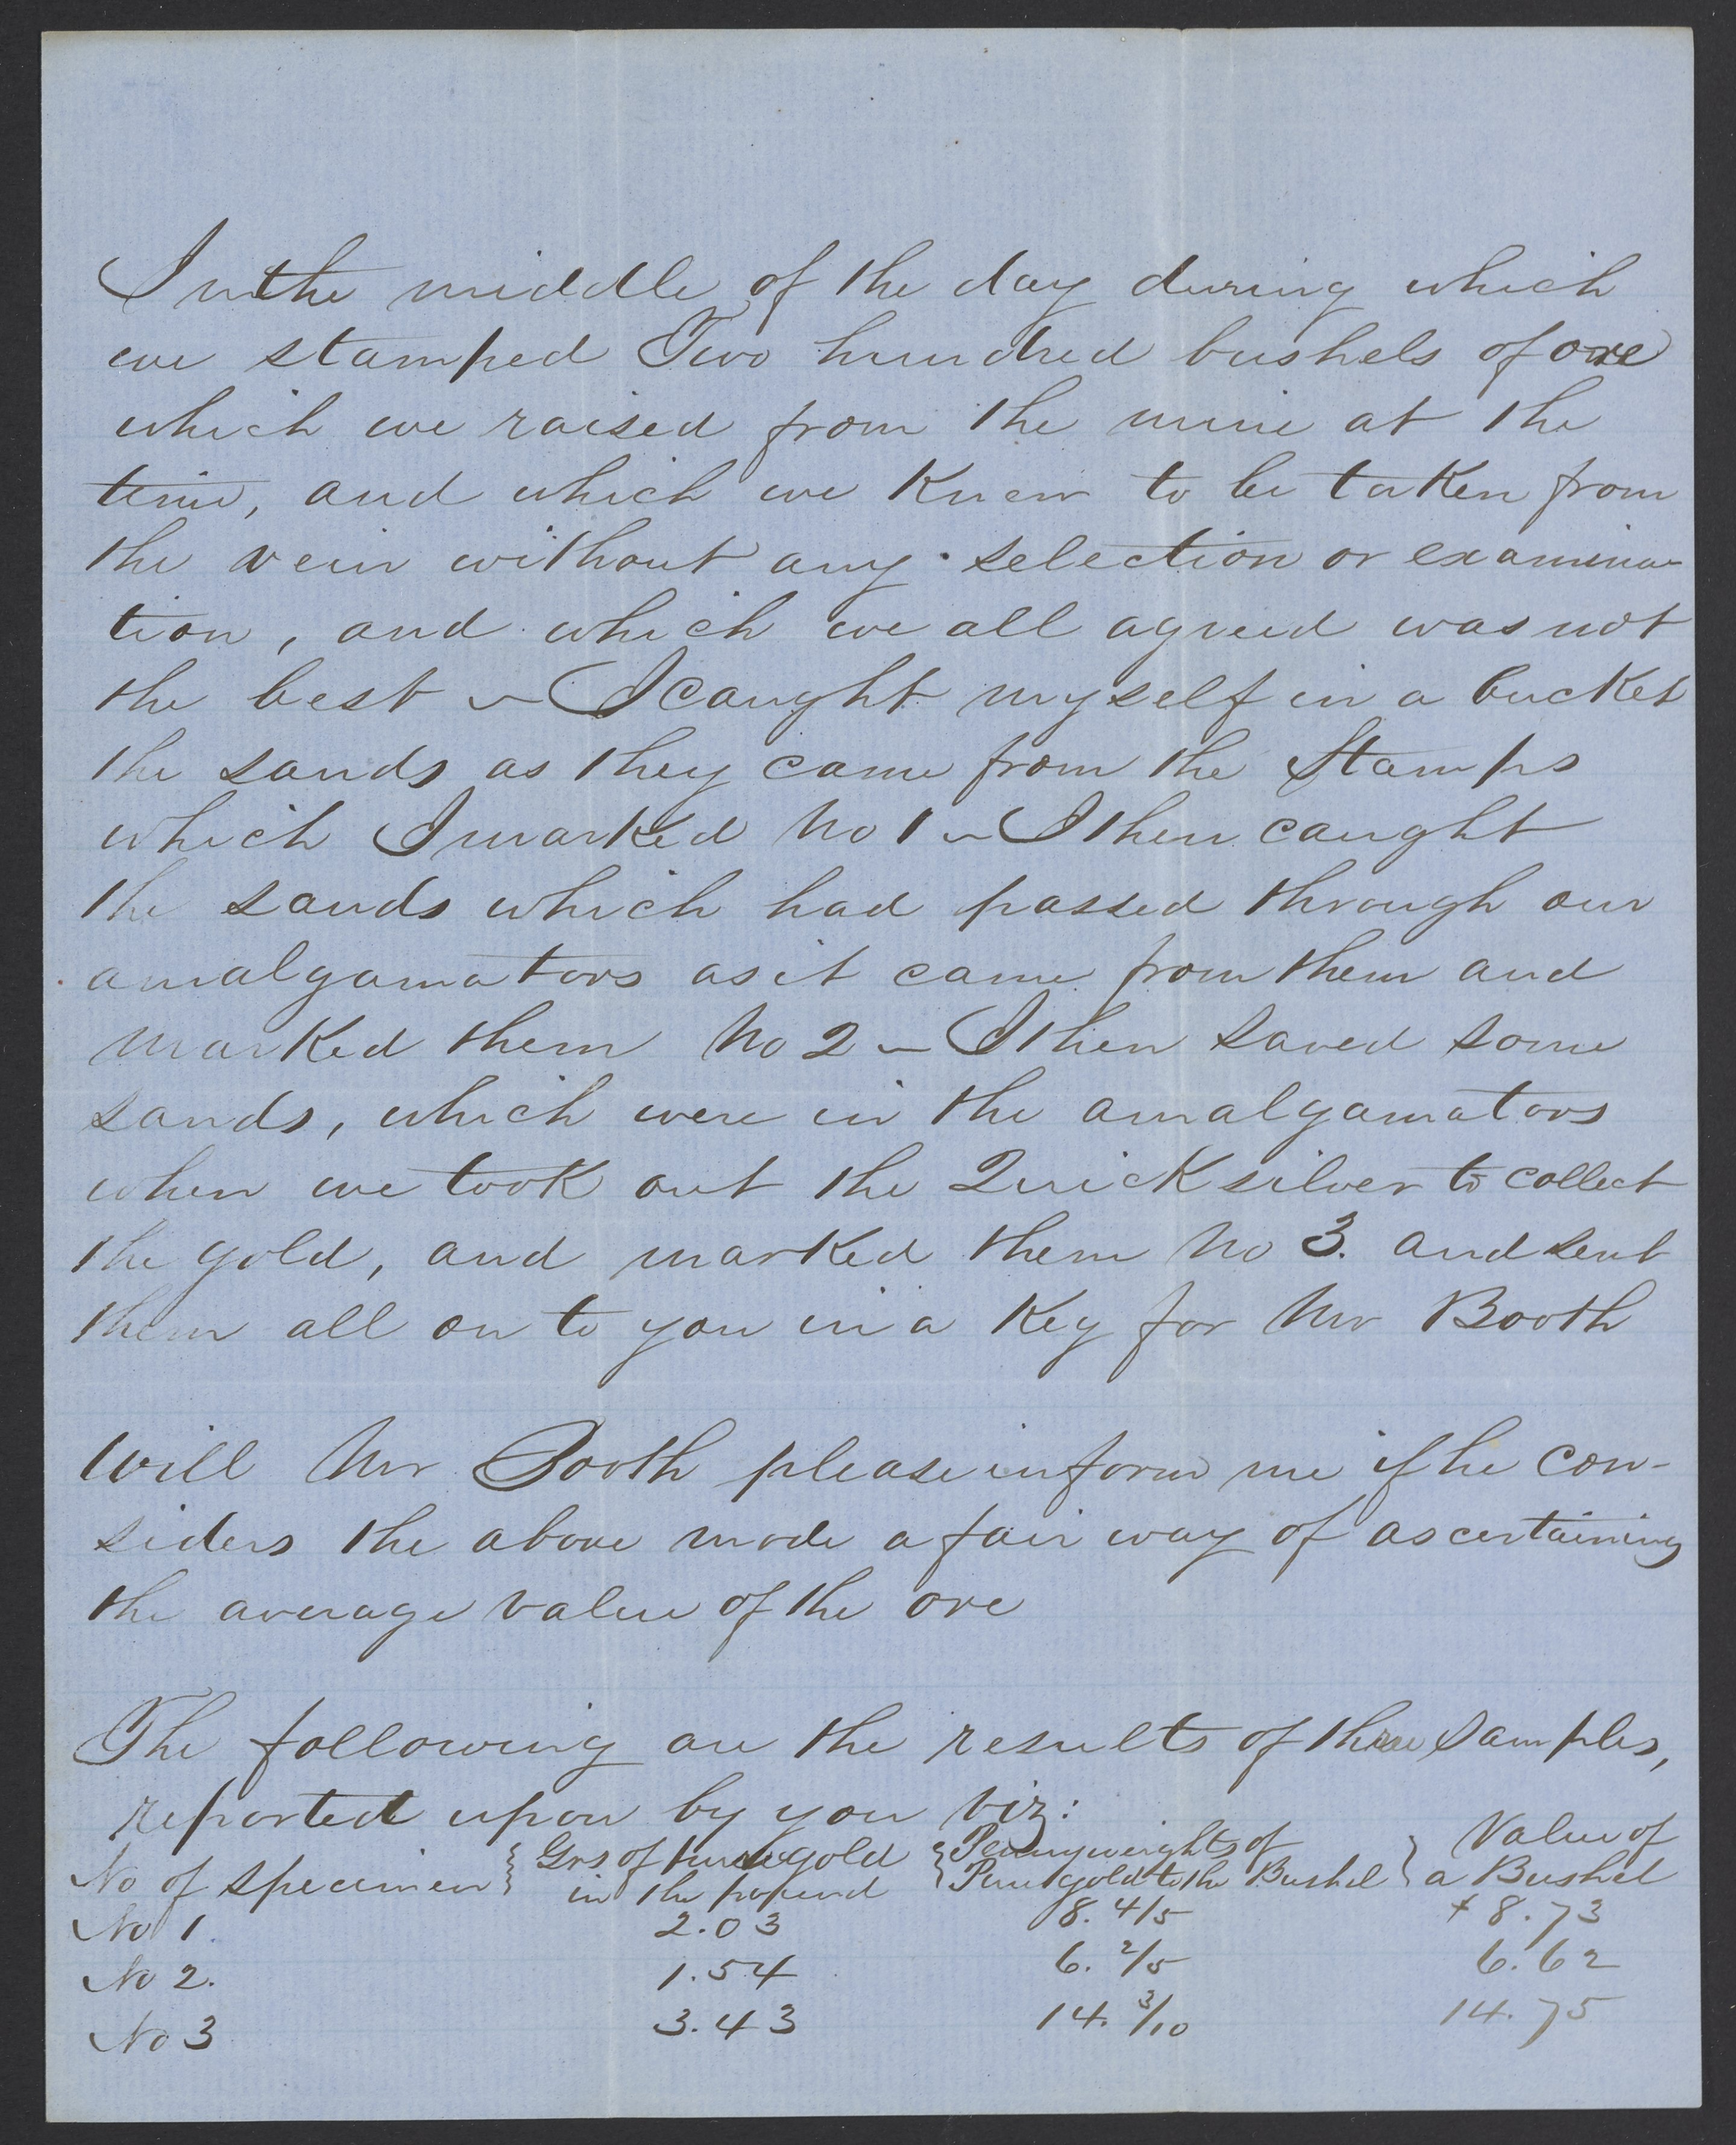 In the middle of the day during which
we stamped Two hundred bushels of ore
which we raised from the mine at the
time, and which we knew to be taken from
the vein without any selection or examina-
tion, and which we all agreed was not
the best ~ I caught myself in a bucket
the sands as they came from the Stamps
which I marked No 1 ~ I then caught
the sands which had passed through our
amalgamators as it came from them and
marked them No 2 ~ I then saved some
sands, which were in the amalgamators
when we took out the Quicksilver to collect
the gold, and marked them No 3. and sent
them all on to you in a Keg for Mr Booth
Will Mr Booth please inform me if he con-
siders the above mode a fair way of ascertaining
the average value of the ore
The following are the results of three samples,
reported upon by you viz:
No of specimen } Grs of pure gold in the pound { Pennyweights of Pure gold to the Bushel } Value of a Bushel
No 1. 2.03 8. 4/5 $ 8.73
No 2. 1.54 6. 2/5 6.62
No 3 3.43 14. 3/10 14.75